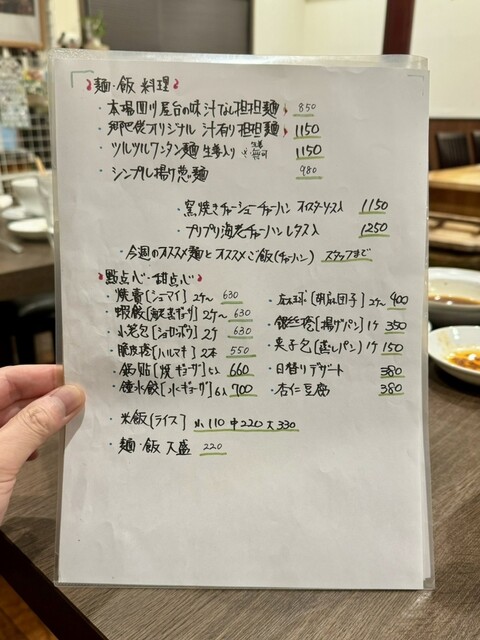 麺・飯 料理
・本場四川屋台の味 汁なし担担麺 850
・オリジナル 汁有り 担担麺 1150
・ツルツルワンタン麺 生姜入り 1150
・シンプル揚げ葱麺 980
・窯焼きチャーシューチャーハン オイスターソース入 1150
・プリプリ海老チャーハンレタス入 1250
・今週のオススメ麺とオススメご飯(チャーハン) スタッフまで
點点心・甜点心
・燒賣[シュウマイ] 2ケ〜 630
・蝦餃[海老蒸ギョウザ] 2ケ〜 630
・小龙包[ショウロンポウ] 2ケ 630
・脆皮捲[ハルマキ] 2本 550
・鍋貼[焼ギョーザ] 5コ 660
・鐘水餃[水ギョーザ] 6コ 700
・麻球[胡麻団子] 2ケ〜 400
・銀丝捲[揚げパン] 1ケ 350
・夹子包[蒸しパン] 1ケ 150
・日替りデザート 380
・杏仁豆腐 380
・米飯[ライス] 小110 中220 大330
・麺・飯 大盛 220